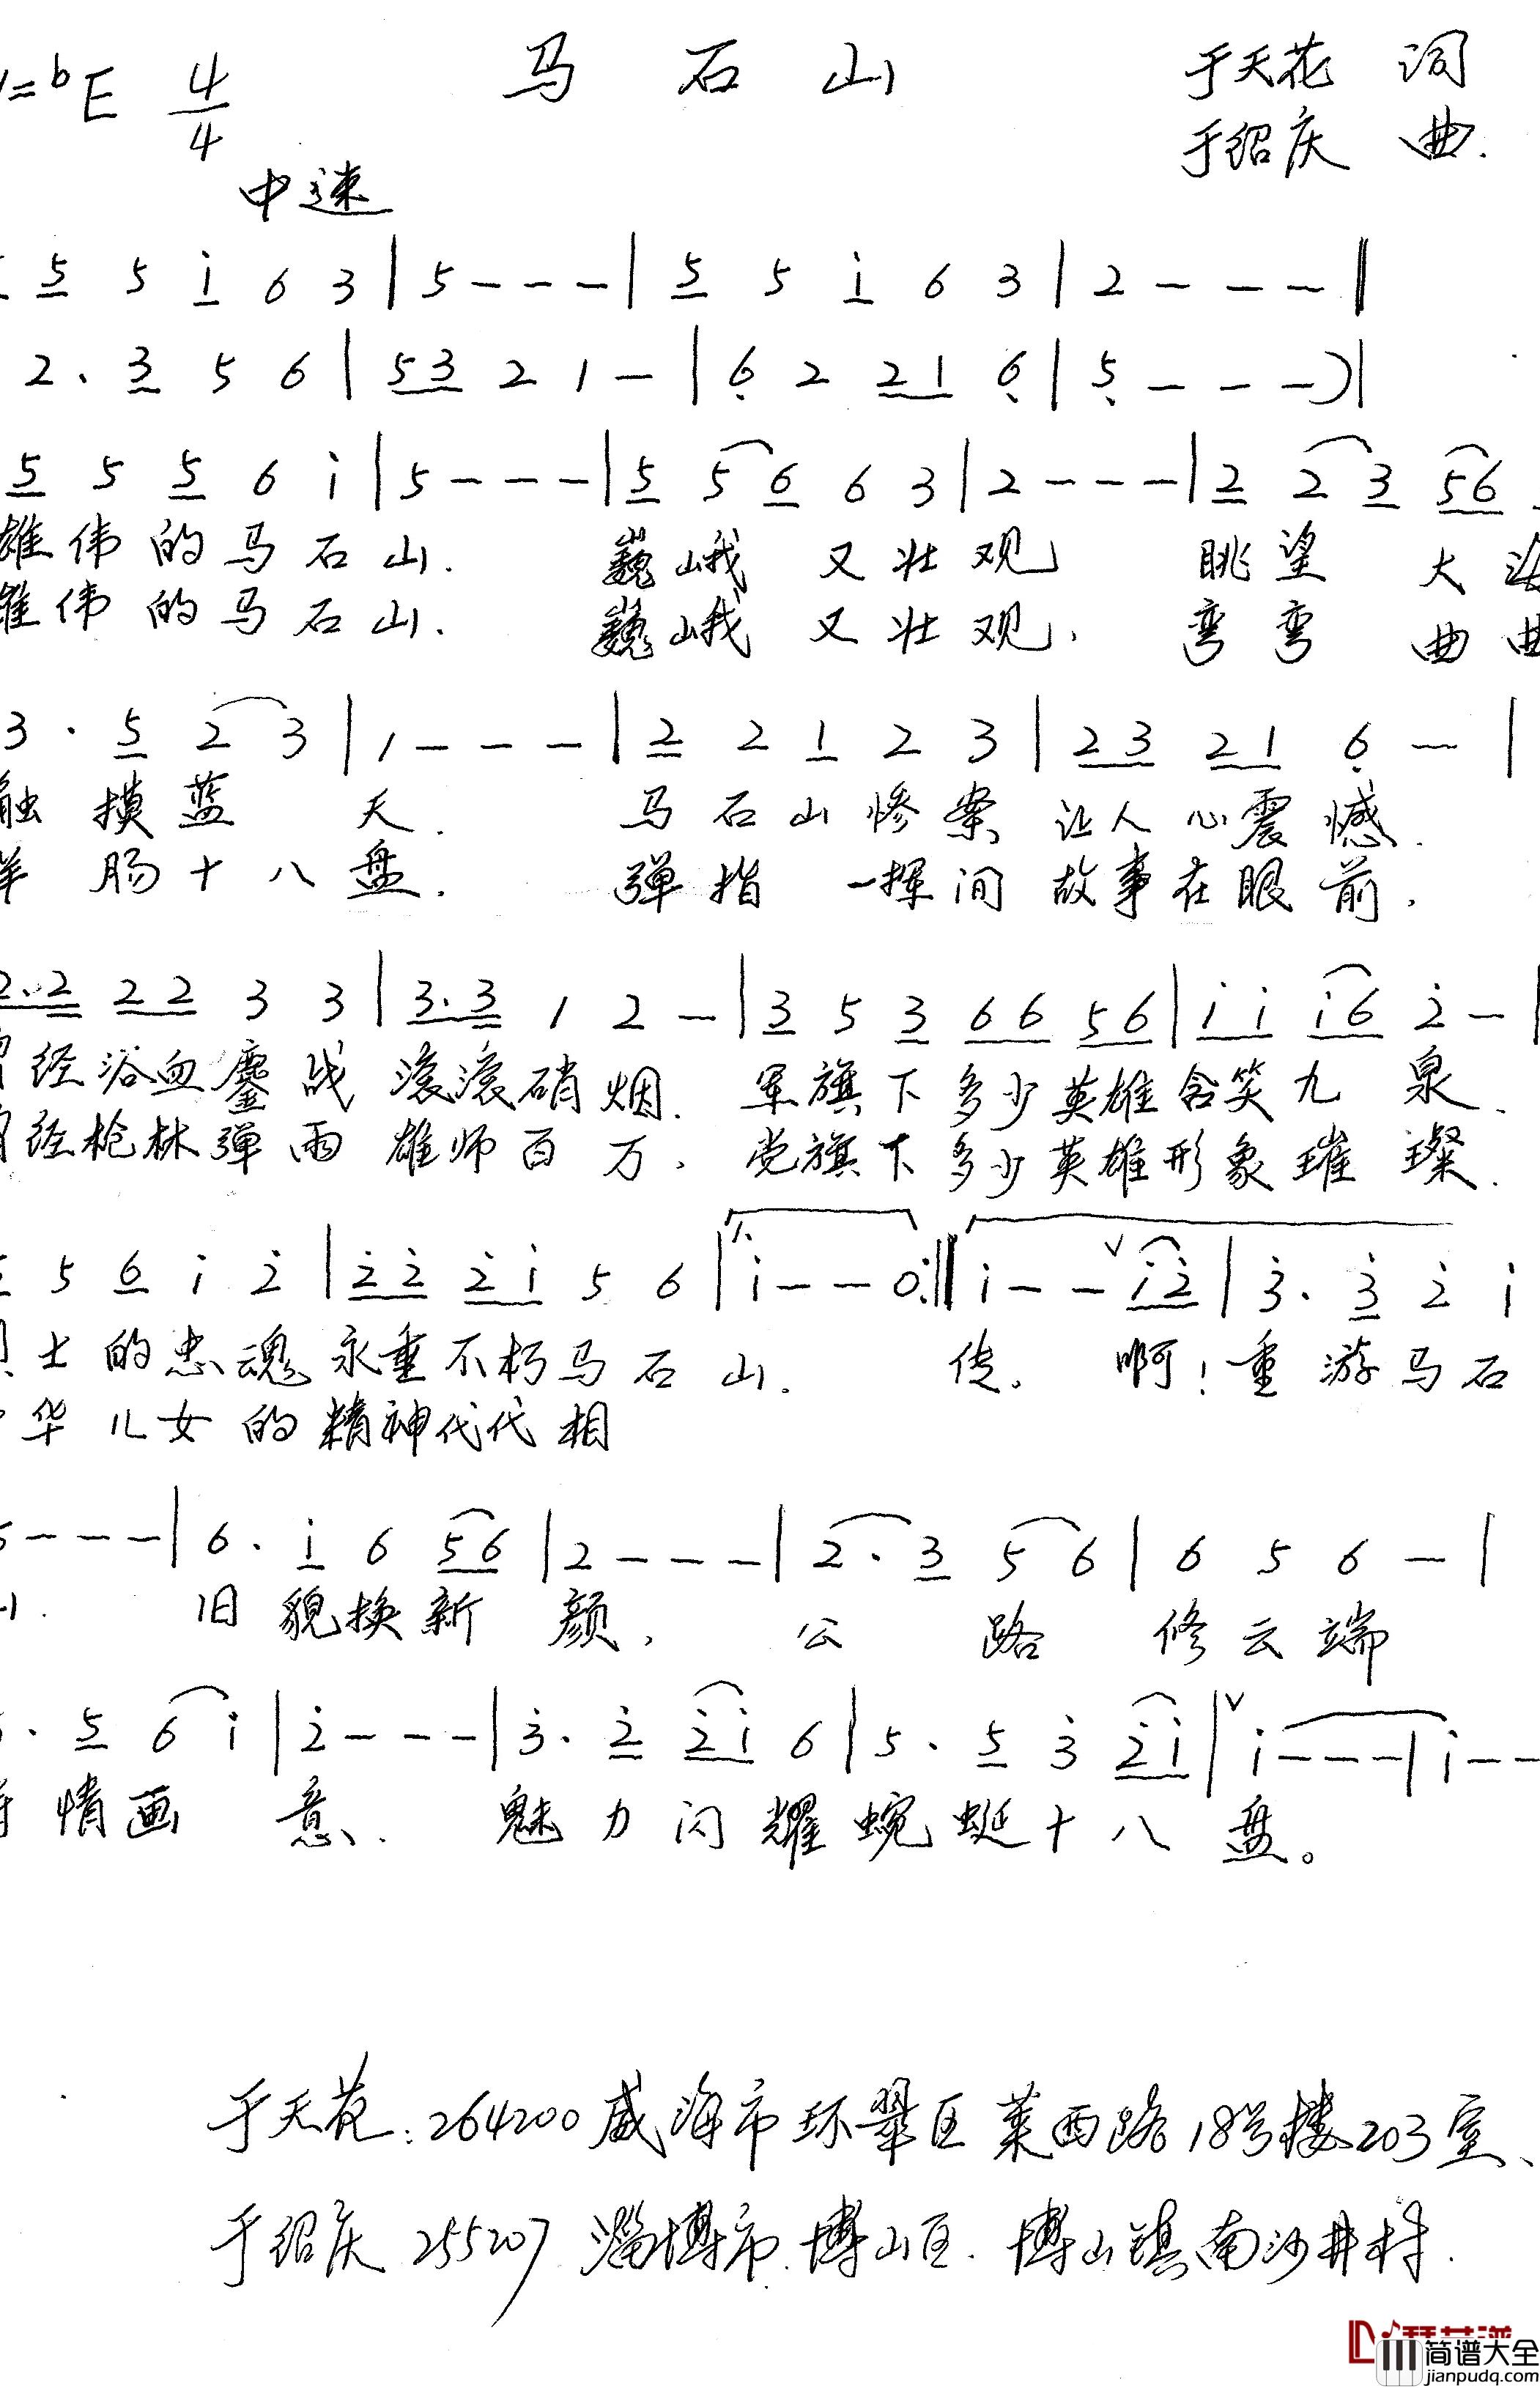 1=bE 4/4 马石山 于天花 词
中速 于绍庆 曲.
5 5 i 6 3 | 5 - - - | 5 5 i 6 3 | 2 - - - ‖
2. 3 5 6 | 5 3 2 1 - | 6 2 2 1 6 | 5 - - - ) |
5 5 5 6 i | 5 - - - | 5 5 6 6 3 | 2 - - - | 2 2 3 5 6
雄伟的马石山. 巍峨又壮观 眺望大海
雄伟的马石山. 巍峨又壮观. 弯弯曲曲
3 . 5 2 3 | 1 - - - | 2 2 1 2 3 | 2 3 2 1 6 - |
触摸蓝天. 马石山惨案, 让人心震憾.
羊肠十八盘. 弹指一挥间 故事在眼前.
2. 2 2 2 3 3 | 3. 3 1 2 - | 3 5 3 6 6 5 6 | i i i 6 2 - |
经浴血鏖战 滚滚硝烟. 军旗下多少英雄含笑九泉.
经枪林弹雨 雄师百万. 党旗下多少英雄形象璀璨.
5 6 i 2 | 2 2 2 i 5 6 | 1. i - - 0 :‖ i - - ˅ i 2 | 3. 3 2 i
士的忠魂永垂不朽马石山. 传。 啊!重游马石
华儿女的精神代代相
5 - - - | 6. i 6 5 6 | 2 - - - | 2. 3 5 6 | 6 5 6 - |
旧貌换新颜. 公路修云端
. 5 6 i | 2 - - - | 3. 2 2 i 6 | 5. 5 3 2 i | ˅ i - - - | i - -
情画意. 魅力闪耀蜿蜒十八盘。
于天花: 264200 威海市环翠区莱西路18号楼203室、
于绍庆 255207 淄博市.博山区.博山镇南沙井村.
简谱大全
jianpudq.com